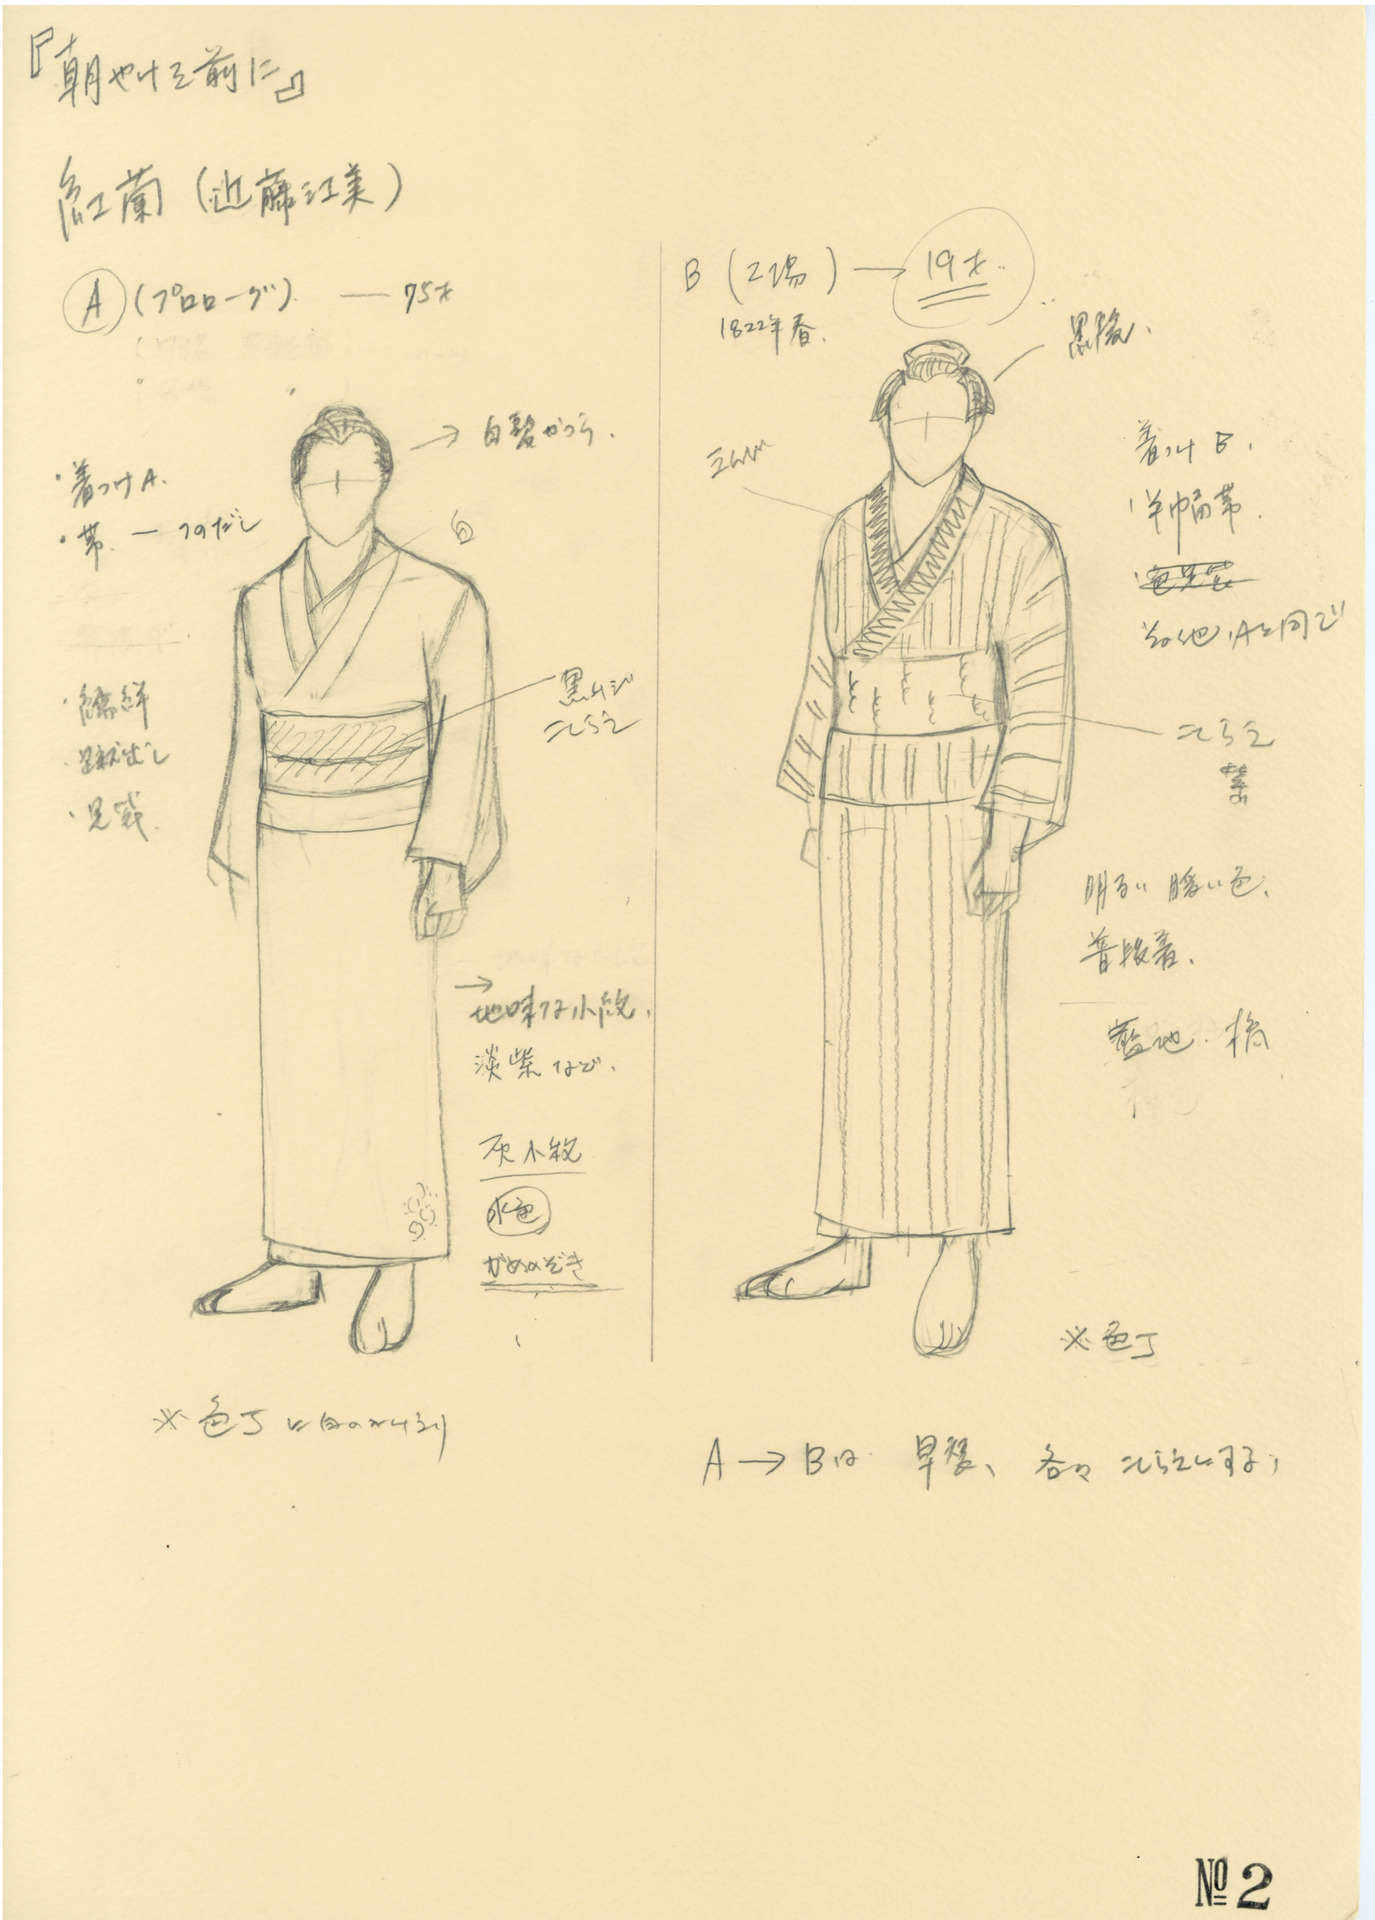 『朝やけを前に』
紅蘭 (近藤江美)
A (プロローグ) — 75才
白髪かつら.
・着つけA.
・帯. — つのだし
白
黒ムジ
こしらえ
・襦袢
・蹴出し
・足袋.
→地味な小紋.
淡紫など.
灰小紋
水色
がめのぞき
※色丁
B (2場) → 19才.
1822年春.
黒
着つけB.
半幅帯.
その他Aと同じ
こしらえ
明るい暖い色.
普段着.
藍地. 橋
※色丁
A→Bは 早変、各々 こしらえにする
№2